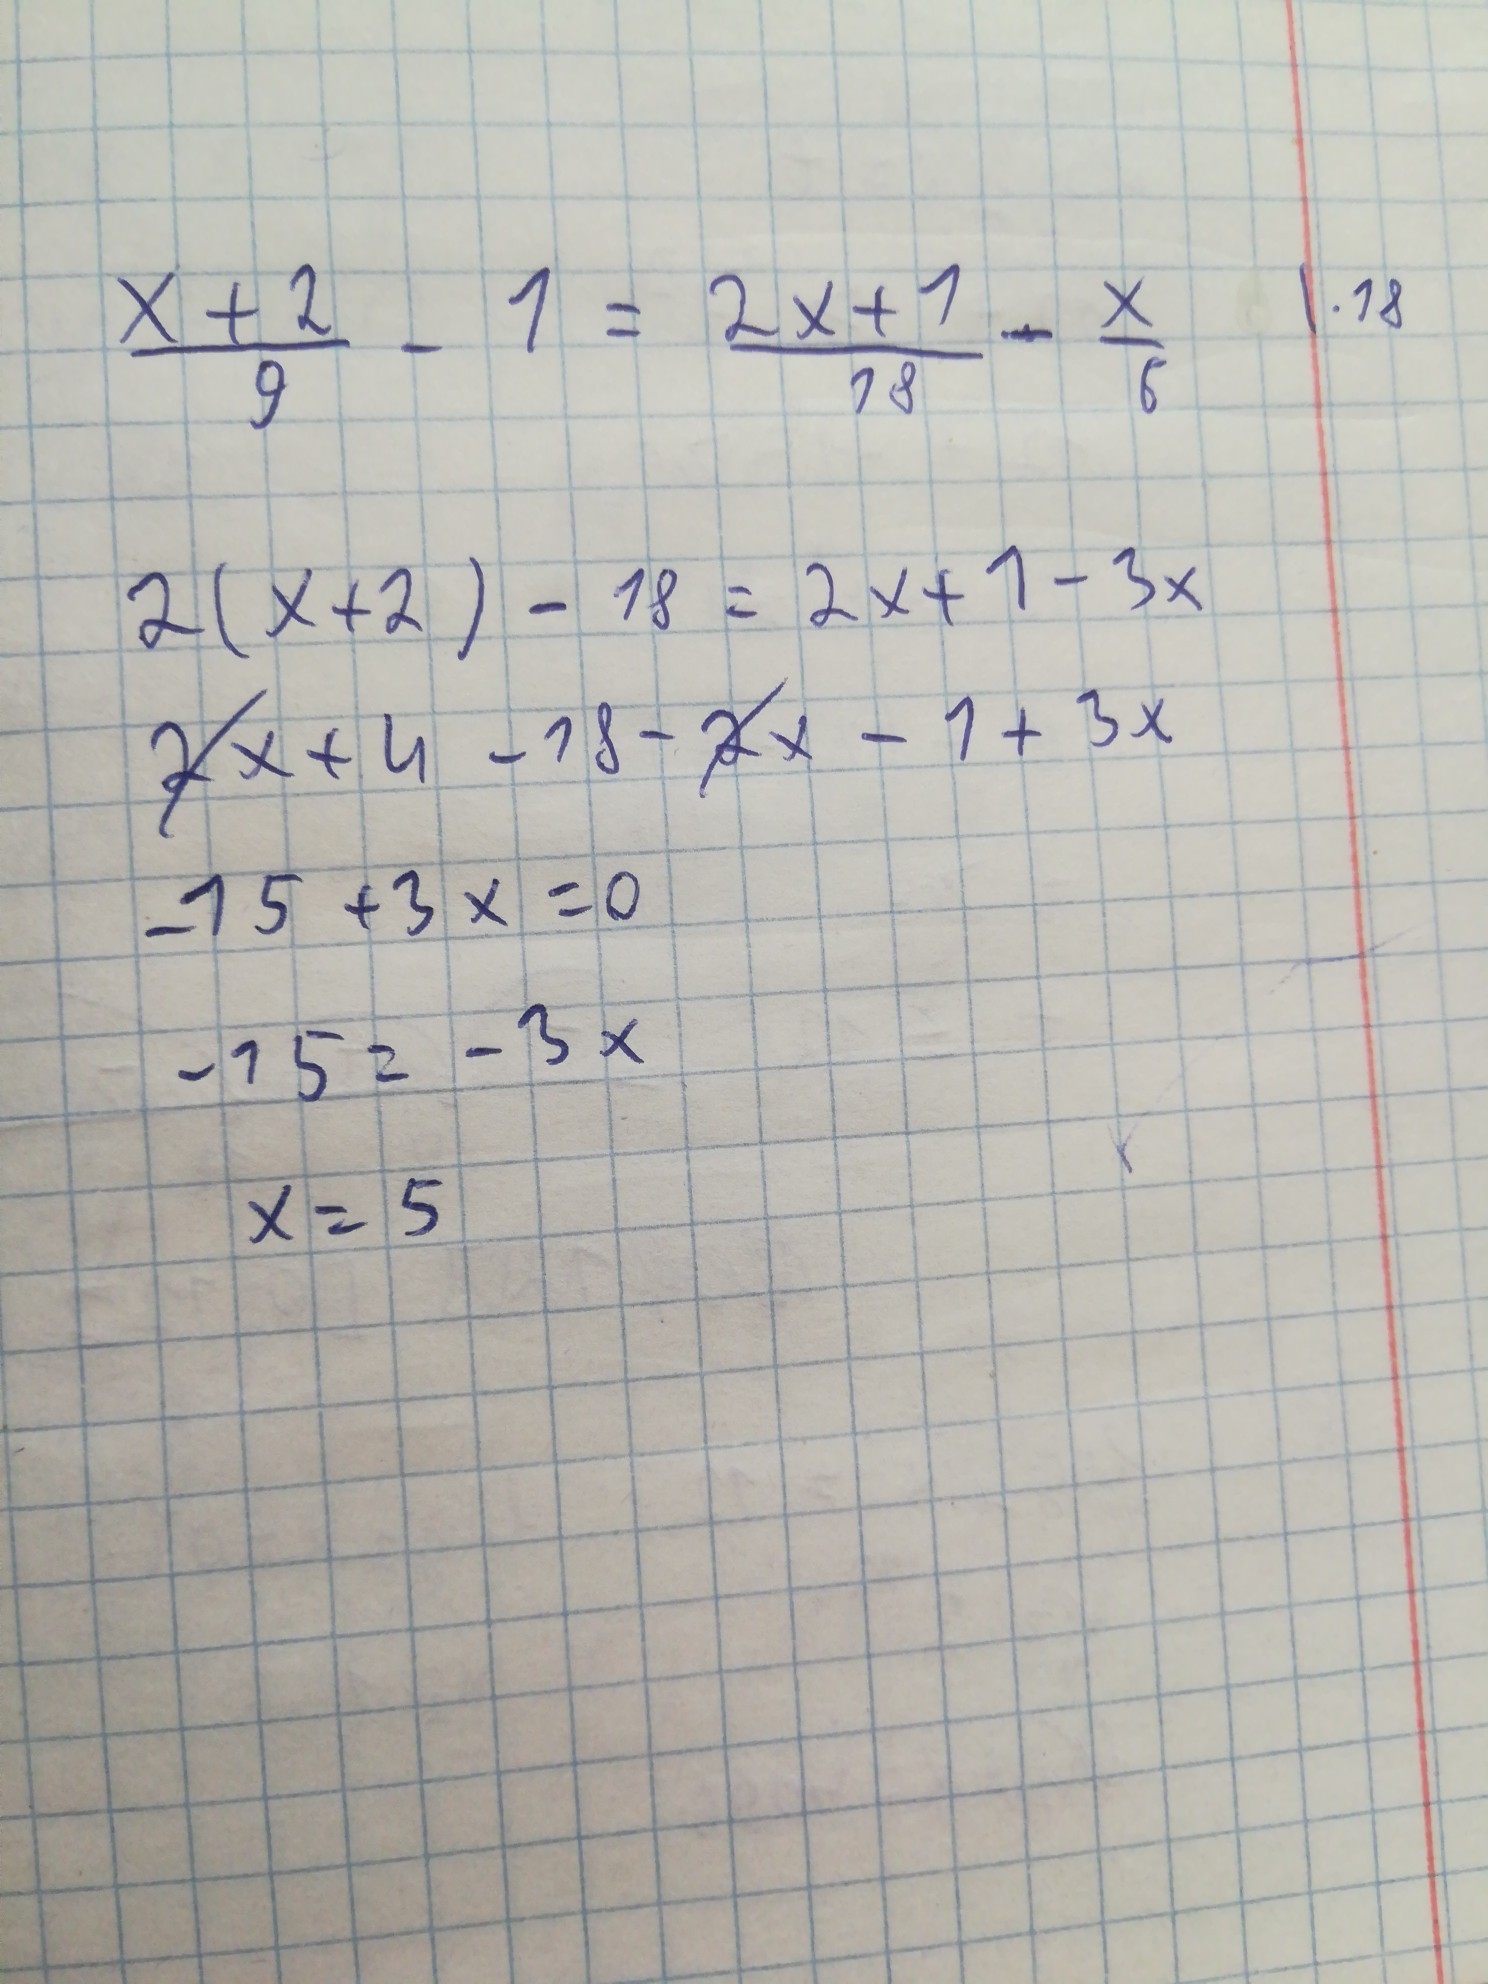 (x+2)/9 - 1 = (2x+1)/18 - x/6 |·18
2(x+2) - 18 = 2x+1-3x
2x+4-18-2x-1+3x
-15+3x=0
-15=-3x
x=5